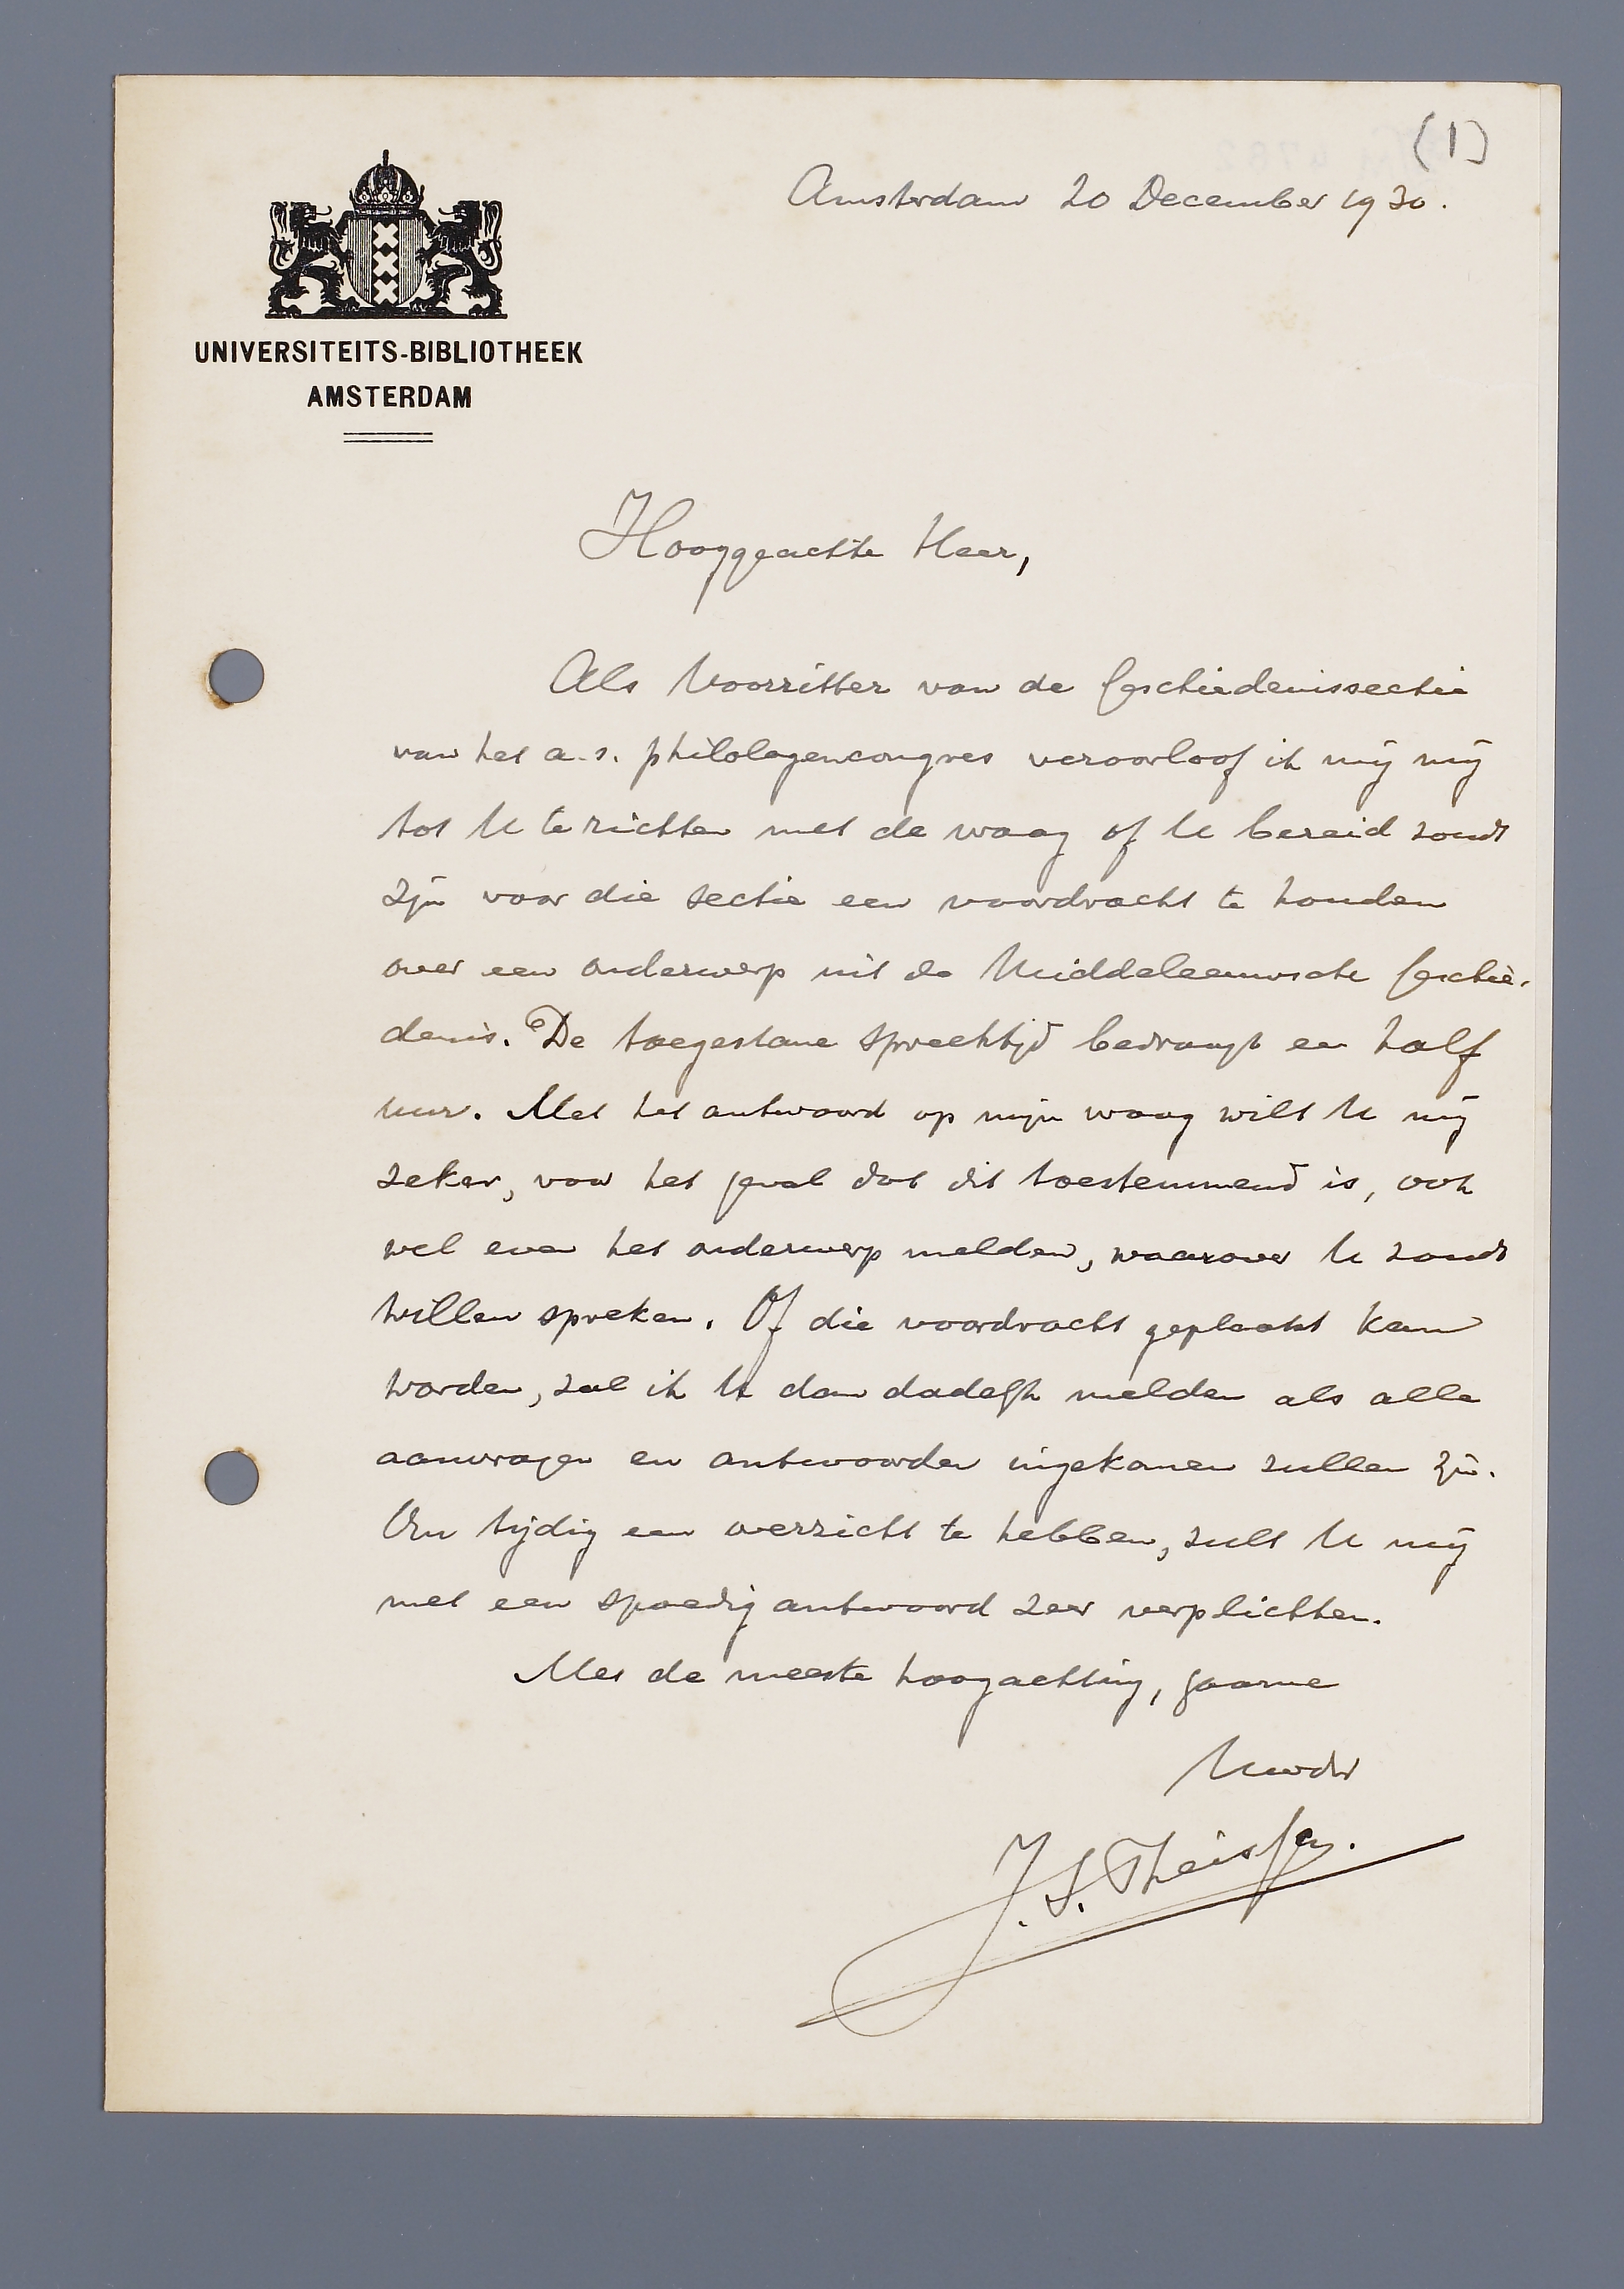 (1)
Amsterdam 20 December 1930.
UNIVERSITEITS-BIBLIOTHEEK
AMSTERDAM
Hooggeachte Heer,
Als Voorzitter van de Geschiedenissectie
van het a.s. philologencongres veroorloof ik mij mij
tot U te richten met de vraag of U bereid zoudt
zijn voor die sectie een voordracht te houden
over een onderwerp uit de Middeleeuwsche Geschie-
denis. De toegestane spreektijd bedraagt een half
uur. Met het antwoord op mijn vraag wilt U mij
zeker, voor het geval dat dit toestemmend is, ook
wel even het onderwerp melden, waarover U zoudt
willen spreken. Of die voordracht geplaatst kan
worden, zal ik U dan dadelijk melden als alle
aanvragen en antwoorden ingekomen zullen zijn.
Om tijdig een overzicht te hebben, zult U mij
met een spoedig antwoord zeer verplichten.
Met de meeste hoogachting, gaarne
Uwdw
J.S. Theissen.